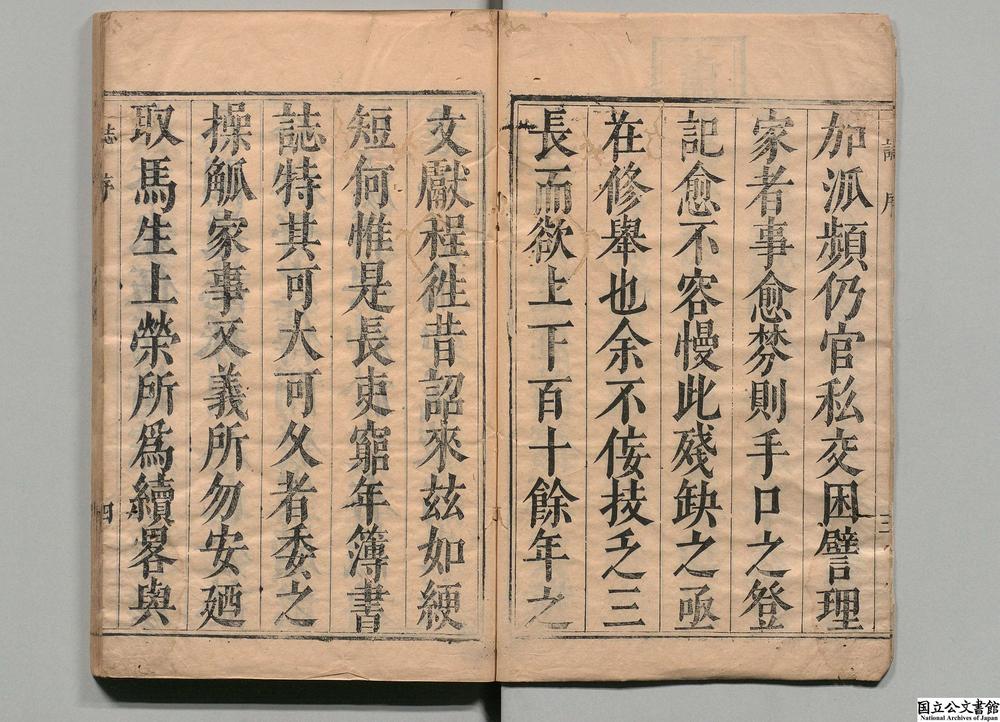 加派頻仍官私交困譬理
家者事愈棼則手口之登
記愈不容慢此殘缺之亟
在修舉也余不佞技乏三
長而欲上下百十餘年之
文獻程徃昔詔來茲如綆
短何惟是長吏窮年簿書
誌特其可大可久者委之
操觚家事又義所勿安廼
取馬生上榮所爲續畧與
誌序
四
国立公文書館
National Archives of Japan